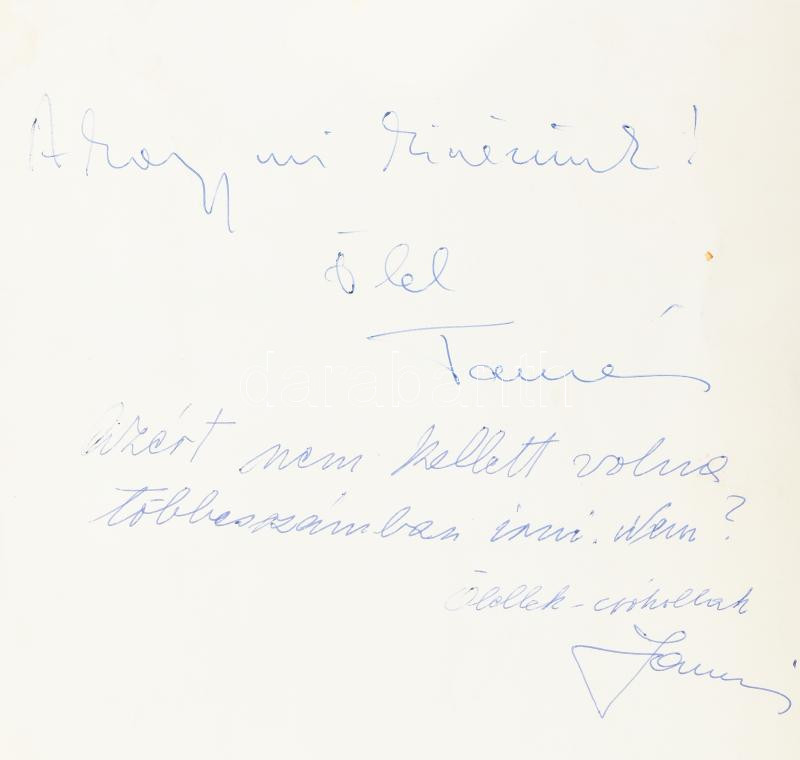 Ahogy mi kinézünk!
Ölel
Tamás
darabanth
Azért nem kellett volna
többesszámban írni. Nem?
Ölellek - csókollak